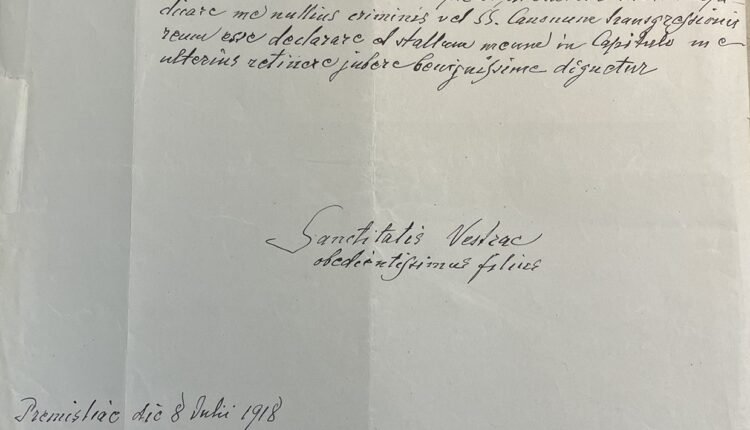 dicare me nullius criminis vel SS. Canonum transgressionis
reum esse declarare et stallum meum in Capitulo me
ulterius retinere jubere benignissime dignetur
Sanctitatis Vestrae
obedientissimus filius
Premisliae die 8 Julii 1918